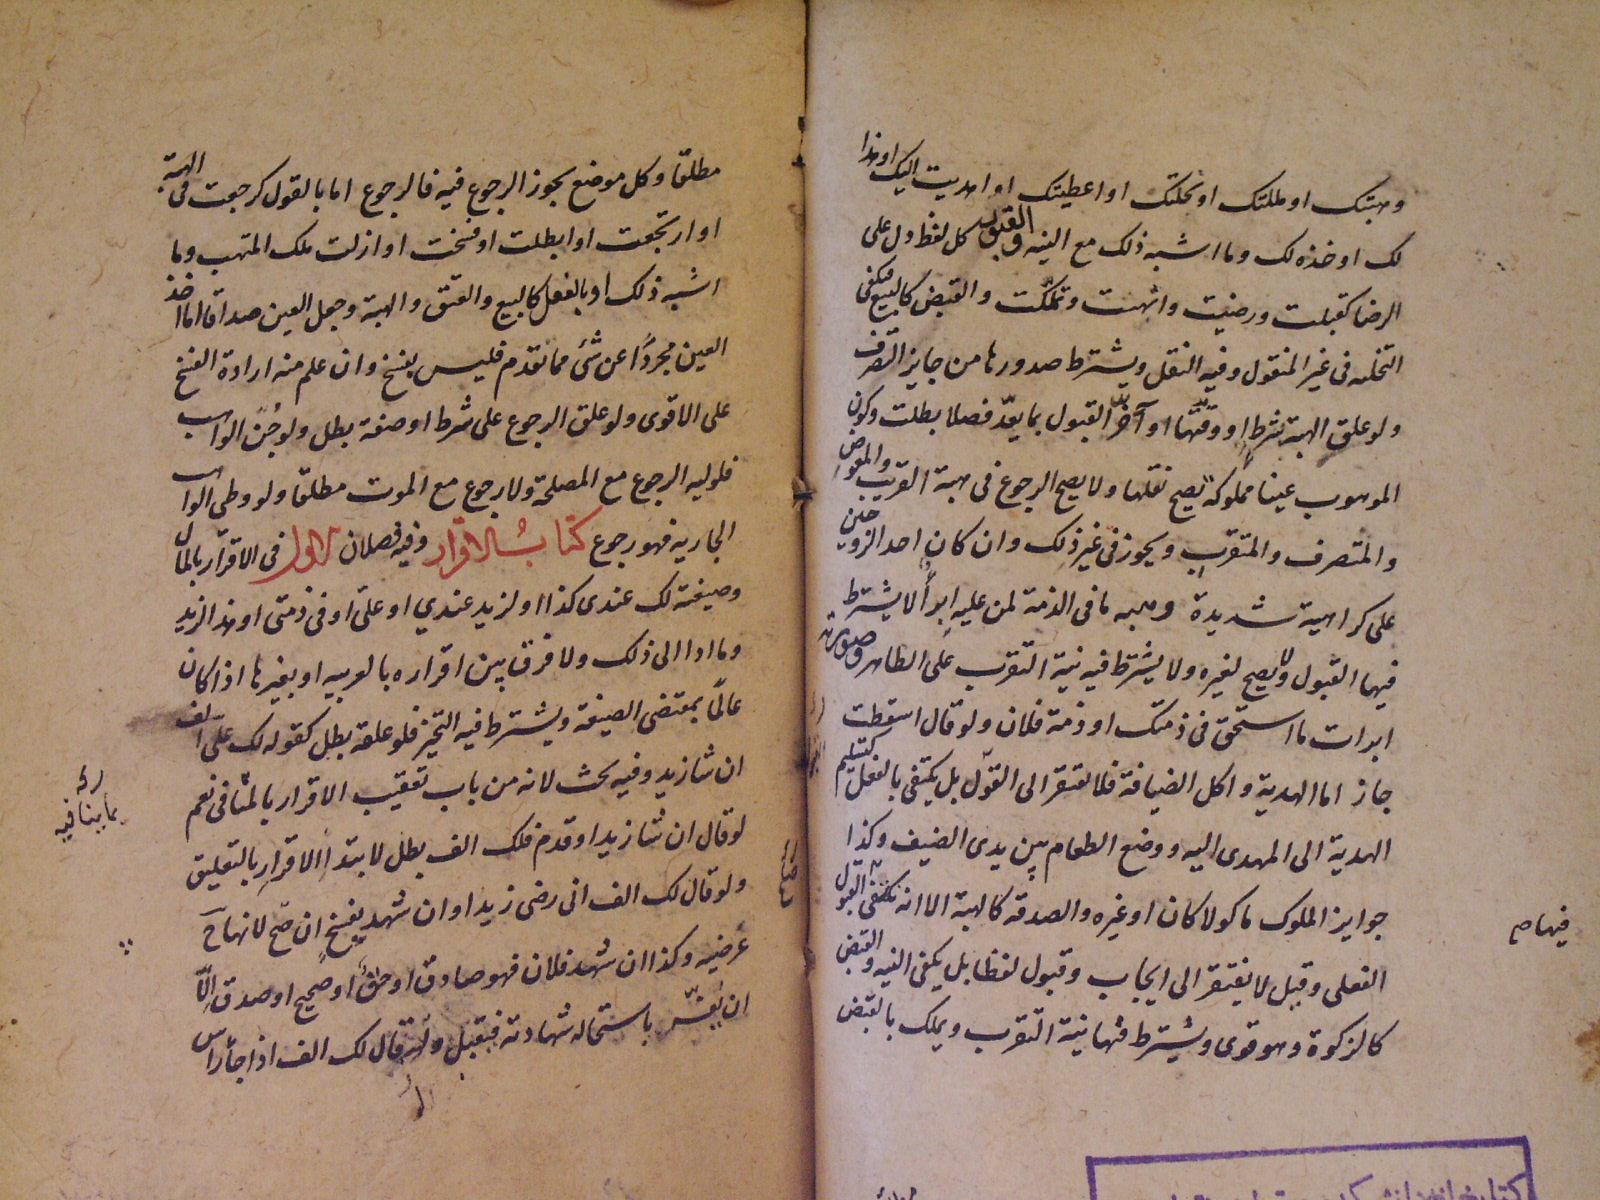 وهبتك او ملكتك او نحلتك او اعطيتك او اهديت اليك او هذا
لك او خذه لك وما اشبه ذلك مع النيه والقبول كل لفظ دل على
الرضا كقبلت ورضيت واتهبت وتملكت والقبض كالبيع فيكفى
التخليه فى غير المنقول وفيه النقل ويشترط صدورها من جايز التصرف
ولو علق الهبة بشرط او وقّتها او آخر القبول بما يعدّ فصلا بطلت وكون
الموهوب عينا مملوكة يصح نقلها ولا يصح الرجوع فى هبة القريب والمعوض
والمتصرف والمتقرب ويجوز فى غير ذلك وان كان احد الزوجين
على كراهية شديدة وهبه ما فى الذمة لمن عليه ابرأ لا يشترط
فيها القبول ولا يصح لغيره ولا يشترط فيه نية التقرب على الظاهر وصورته
ابرات ما استحق فى ذمتك او ذمة فلان ولو قال اسقطت
جاز اما الهدية واكل الضيافة فلا تفتقر الى القول بل يكتفى بالفعل كتسليم
الهدية الى المهدى اليه ووضع الطعام بين يدى الضيف وكذا
جوايز الملوك ماكولا كان او غيره والصدقه كالهبة الا انه يكفى القبول
الفعلى وقيل لا يفتقر الى ايجاب وقبول لفظا بل يكفى النيه والقبض
كالزكوة وهو قوى ويشترط فيها نية التقرب ويملك بالقبض
فيها
مطلقا وكل موضع يجوز الرجوع فيه فالرجوع اما بالقول كرجعت فى الهبة
او ارتجعت او ابطلت او فسخت او ازلت ملك المتهب وما
اشبه ذلك او بالفعل كالبيع والعتق والهبة وجعل العين صداقا اما اخذ
العين مجردًا عن شئ مما تقدم فليس بفسخ وان علم منه ارادة الفسخ
على الاقوى ولو علق الرجوع على شرط او صفة بطل ولو جُنّ الواهب
فلوليه الرجوع مع المصلحة ولا رجوع مع الموت مطلقا ولو وطى الواهب
الجاريه فهو رجوع كتاب الاقرار وفيه فصلان الاول فى الاقرار بالمال
وصيغته لك عندى كذا او لزيد عندي او علىّ او فى ذمتى او هذا لزيد
وما ادا الى ذلك ولا فرق بين اقراره بالعربيه او بغيرها اذا كان
عالمًا بمقتضى الصيغة ويشترط فيه التنجيز فلو علقه بطل كقوله لك علىّ الف
ان شا زيد وفيه بحث لانه من باب تعقيب الاقرار بالمنافى نعم
لو قال ان شا زيد او قدم فلك الف بطل لابتدأ الاقرار بالتعليق
ولو قال لك الف ان رضى زيد او ان شهد بفسخ ان صح لانها ح
عرضيه وكذا ان شهد فلان فهو صادق او حقٌ او صحيح او صدق الّا
ان يفسّر باستحاله شهادته فيقبل ولو قال لك الف اذا جا راس
بما ينافيه